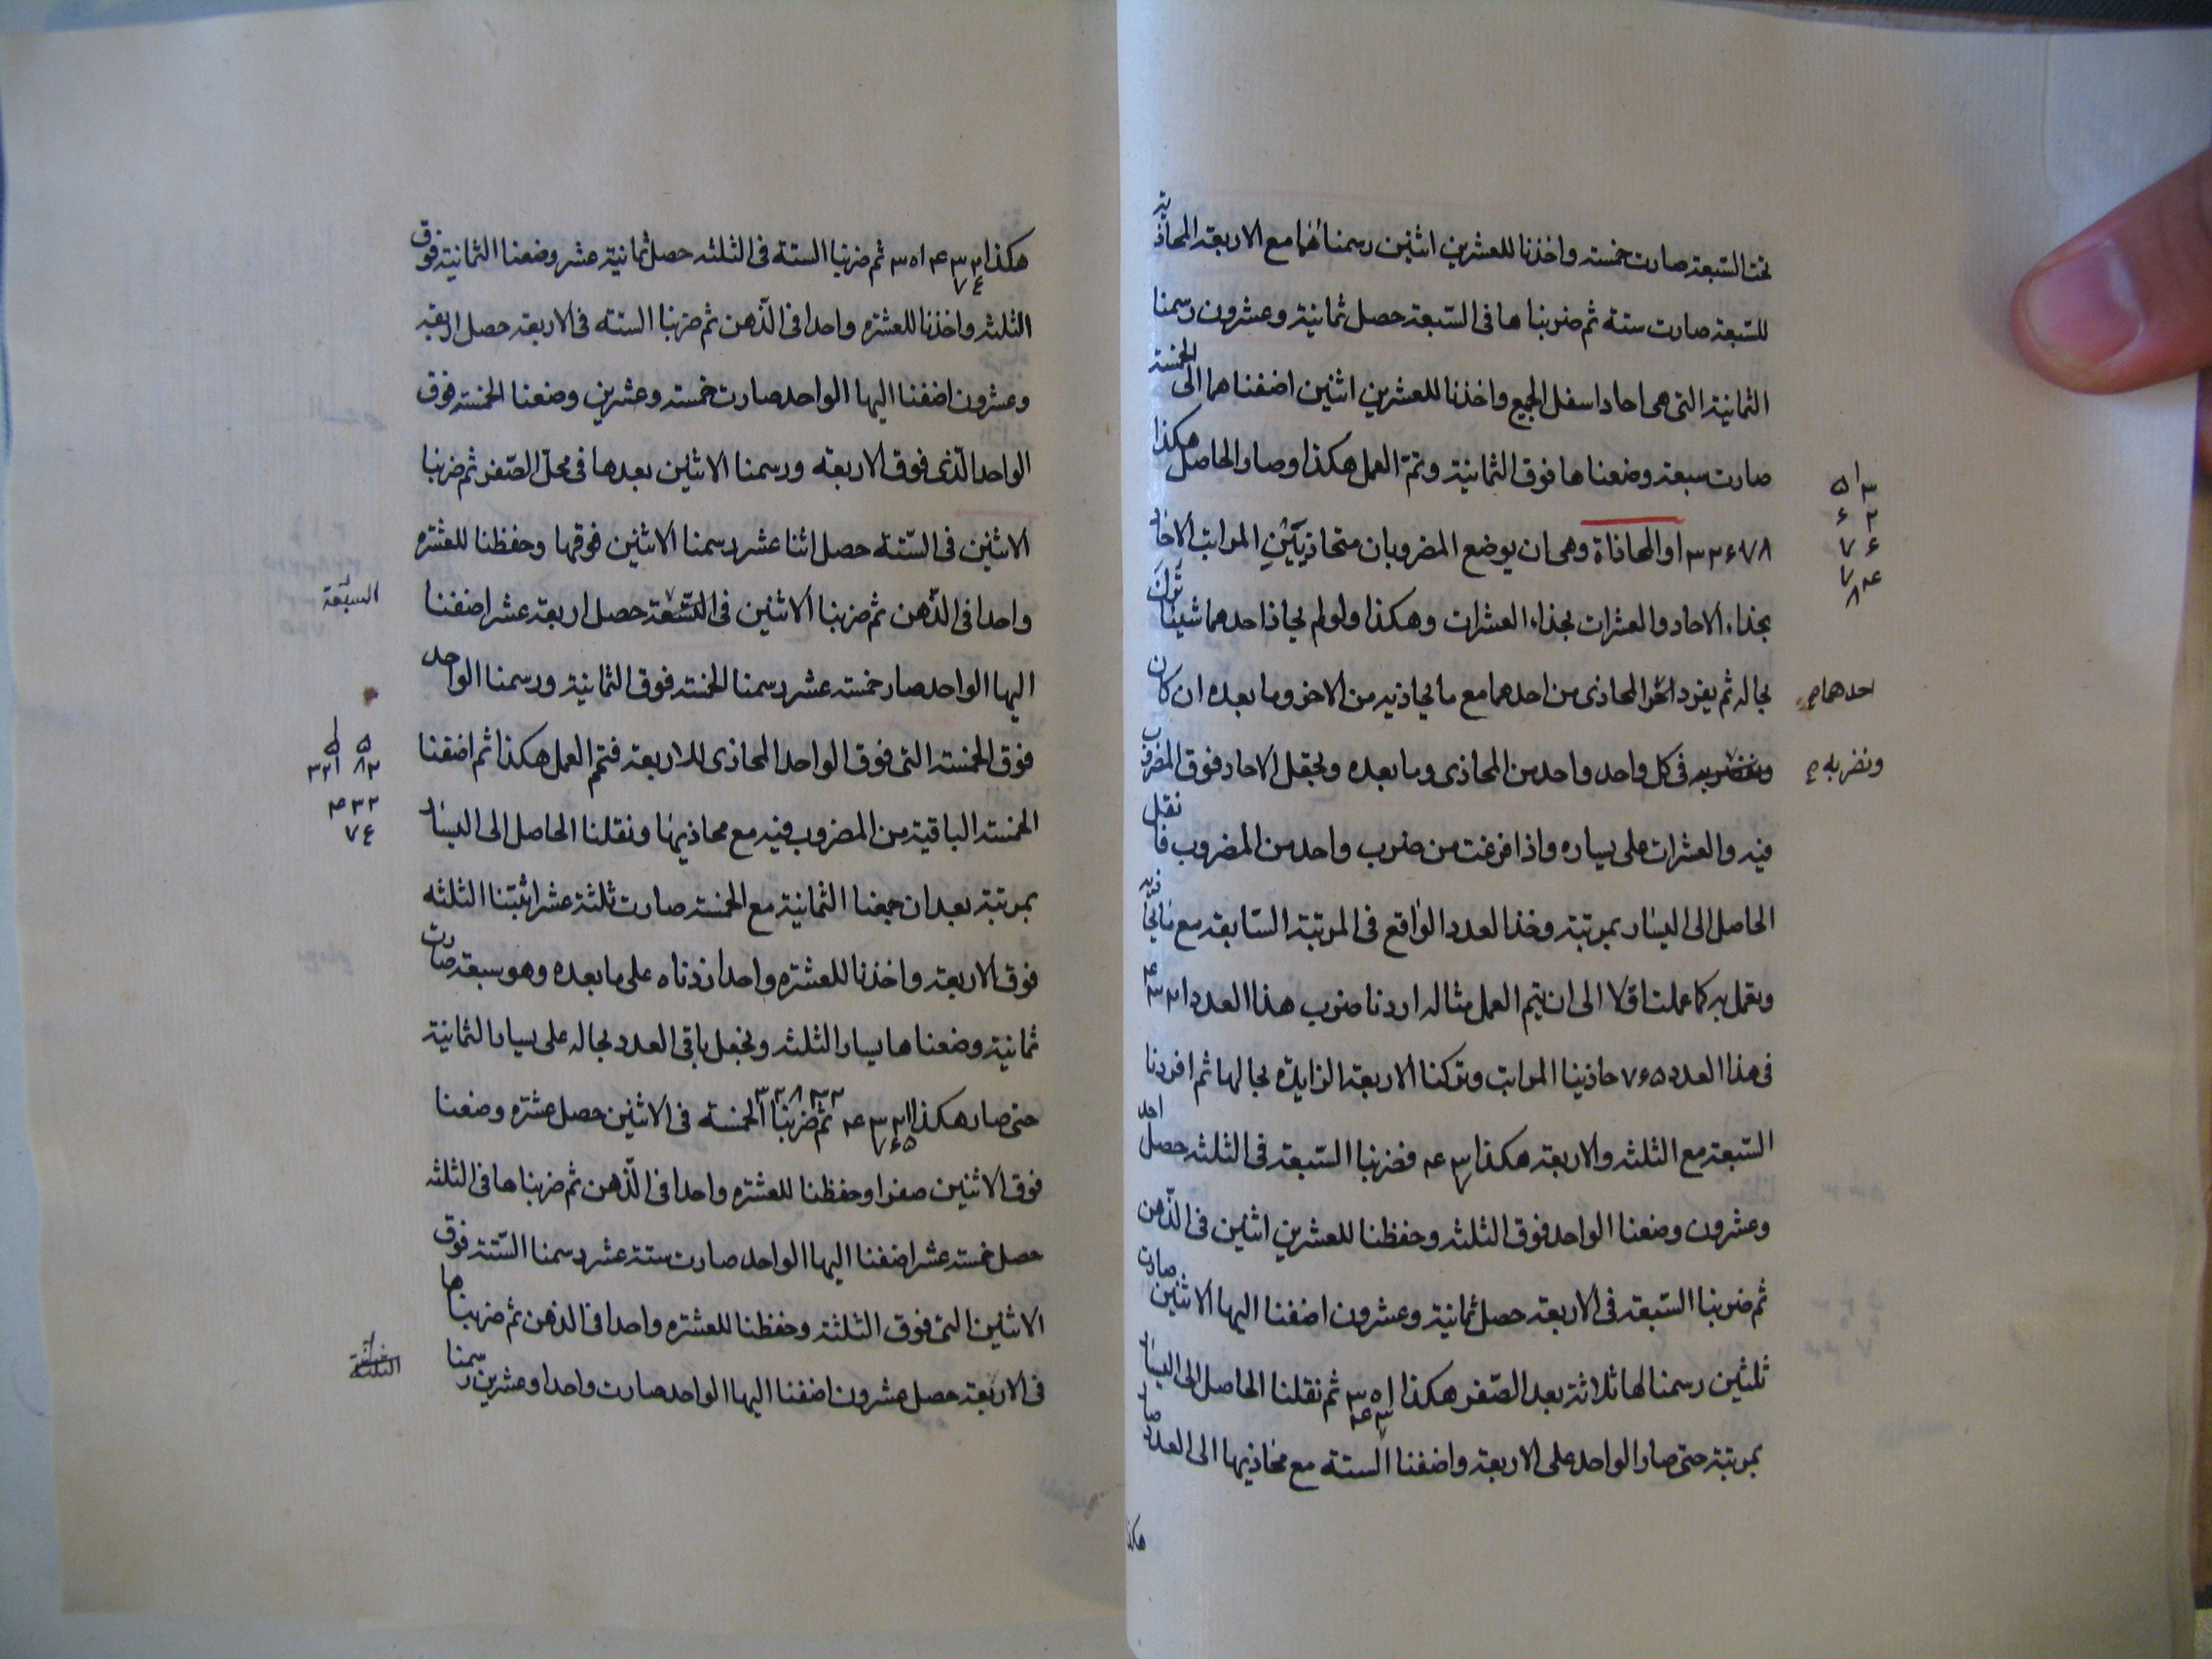 تحت السبعة صارت خمسة واخذنا للعشرين اثنين رسمناهما مع الاربعة المحاذية
للسبعة صارت ستة ثم ضربناها فى السبعة حصل ثمانية وعشرون رسمنا
الثمانية التى هى احاد اسفل الجميع واخذنا للعشرين اثنين اضفناهما الى الخمسة
صارت سبعة وضعناها فوق الثمانية وتم العمل هكذا وصار الحاصل هكذا
٣٢۶٧٨ او المحاذاة وهى ان يوضع المضروبان متحاذيين المراتب الاحاد
بحذاء الاحاد والعشرات بحذاء العشرات وهكذا ولو لم يحاذ احدهما شيئا ترك
بحاله ثم يفرد المحاذى من احدهما مع ما يحاذيه من الاخر وما بعده ان كان
احدهما صح
فى كل واحد واحد من المحاذى وما بعده وتجعل الاحاد فوق المضروب
ونضربه صح
فيه والعشرات على يساره واذا فرغت من ضرب واحد من المضروب فانقل
الحاصل الى اليسار بمرتبة وخذ العدد الواقع فى المرتبة السابقة مع ما يحاذيه
وتعمل به كما عملت اولا الى ان يتم العمل مثاله اردنا ضرب هذا العدد ۴٣٢
فى هذا العدد ٧۶۵ حاذينا المراتب وتركنا الاربعة الزايدة بحالها ثم افردنا
السبعة مع الثلثه والاربعة هكذا فضربنا السبعة فى الثلثه حصل احد
وعشرون وضعنا الواحد فوق الثلثه وحفظنا للعشرين اثنين فى الذهن
ثم ضربنا السبعة فى الاربعة حصل ثمانية وعشرون اضفنا اليها الاثنين صارت
ثلثين رسمنا لها ثلاثة بعد الصفر هكذا ثم نقلنا الحاصل الى اليسار
بمرتبة حتى صار الواحد على الاربعة واضفنا الستة مع محاذيها الى العدد صار
هكذا
هكذا ثم ضربنا الستة فى الثلثه حصل ثمانية عشر وضعنا الثمانية فوق
الثلثه واخذنا للعشره واحدا فى الذهن ثم ضربنا الستة فى الاربعة حصل اربعة
وعشرون اضفنا اليها الواحد صارت خمسة وعشرين وضعنا الخمسة فوق
الواحد الذى فوق الاربعه ورسمنا الاثنين بعدها فى محل الصفر ثم ضربنا
الاثنين فى الستة حصل اثنا عشر رسمنا الاثنين فوقها وحفظنا للعشره
واحدا فى الذهن ثم ضربنا الاثنين فى حصل اربعة عشر اضفنا
السبعة
اليها الواحد صار خمسة عشر رسمنا الخمسة فوق الثمانية ورسمنا الواحد
فوق الخمسة التى فوق الواحد المحاذى للاربعة فتم العمل هكذا ثم اضفنا
الخمسة الباقية من المضروب فيه مع محاذيها ونقلنا الحاصل الى اليسار
بمرتبة بعد ان جمعنا الثمانية مع الخمسة صارت ثلثة عشر اثبتنا الثلثه
فوق الاربعة واخذنا للعشره واحدا زدناه على ما بعده وهو سبعة صارت
ثمانية وضعناها يسار الثلثه ونجعل باقى العدد بحاله على يسار الثمانية
حتى صار هكذا ثم ضربنا الخمسة فى الاثنين حصل عشره وضعنا
فوق الاثنين صفرا وحفظنا للعشره واحدا فى الذهن ثم ضربناها فى الثلثه
حصل خمسة عشر اضفنا اليها الواحد صارت ستة عشر رسمنا الستة فوق
الاثنين التى فوق الثلثة وحفظنا للعشره واحدا فى الذهن ثم ضربناها
فى الاربعة حصل عشرون اضفنا اليها الواحد صارت واحدا وعشرين رسمنا